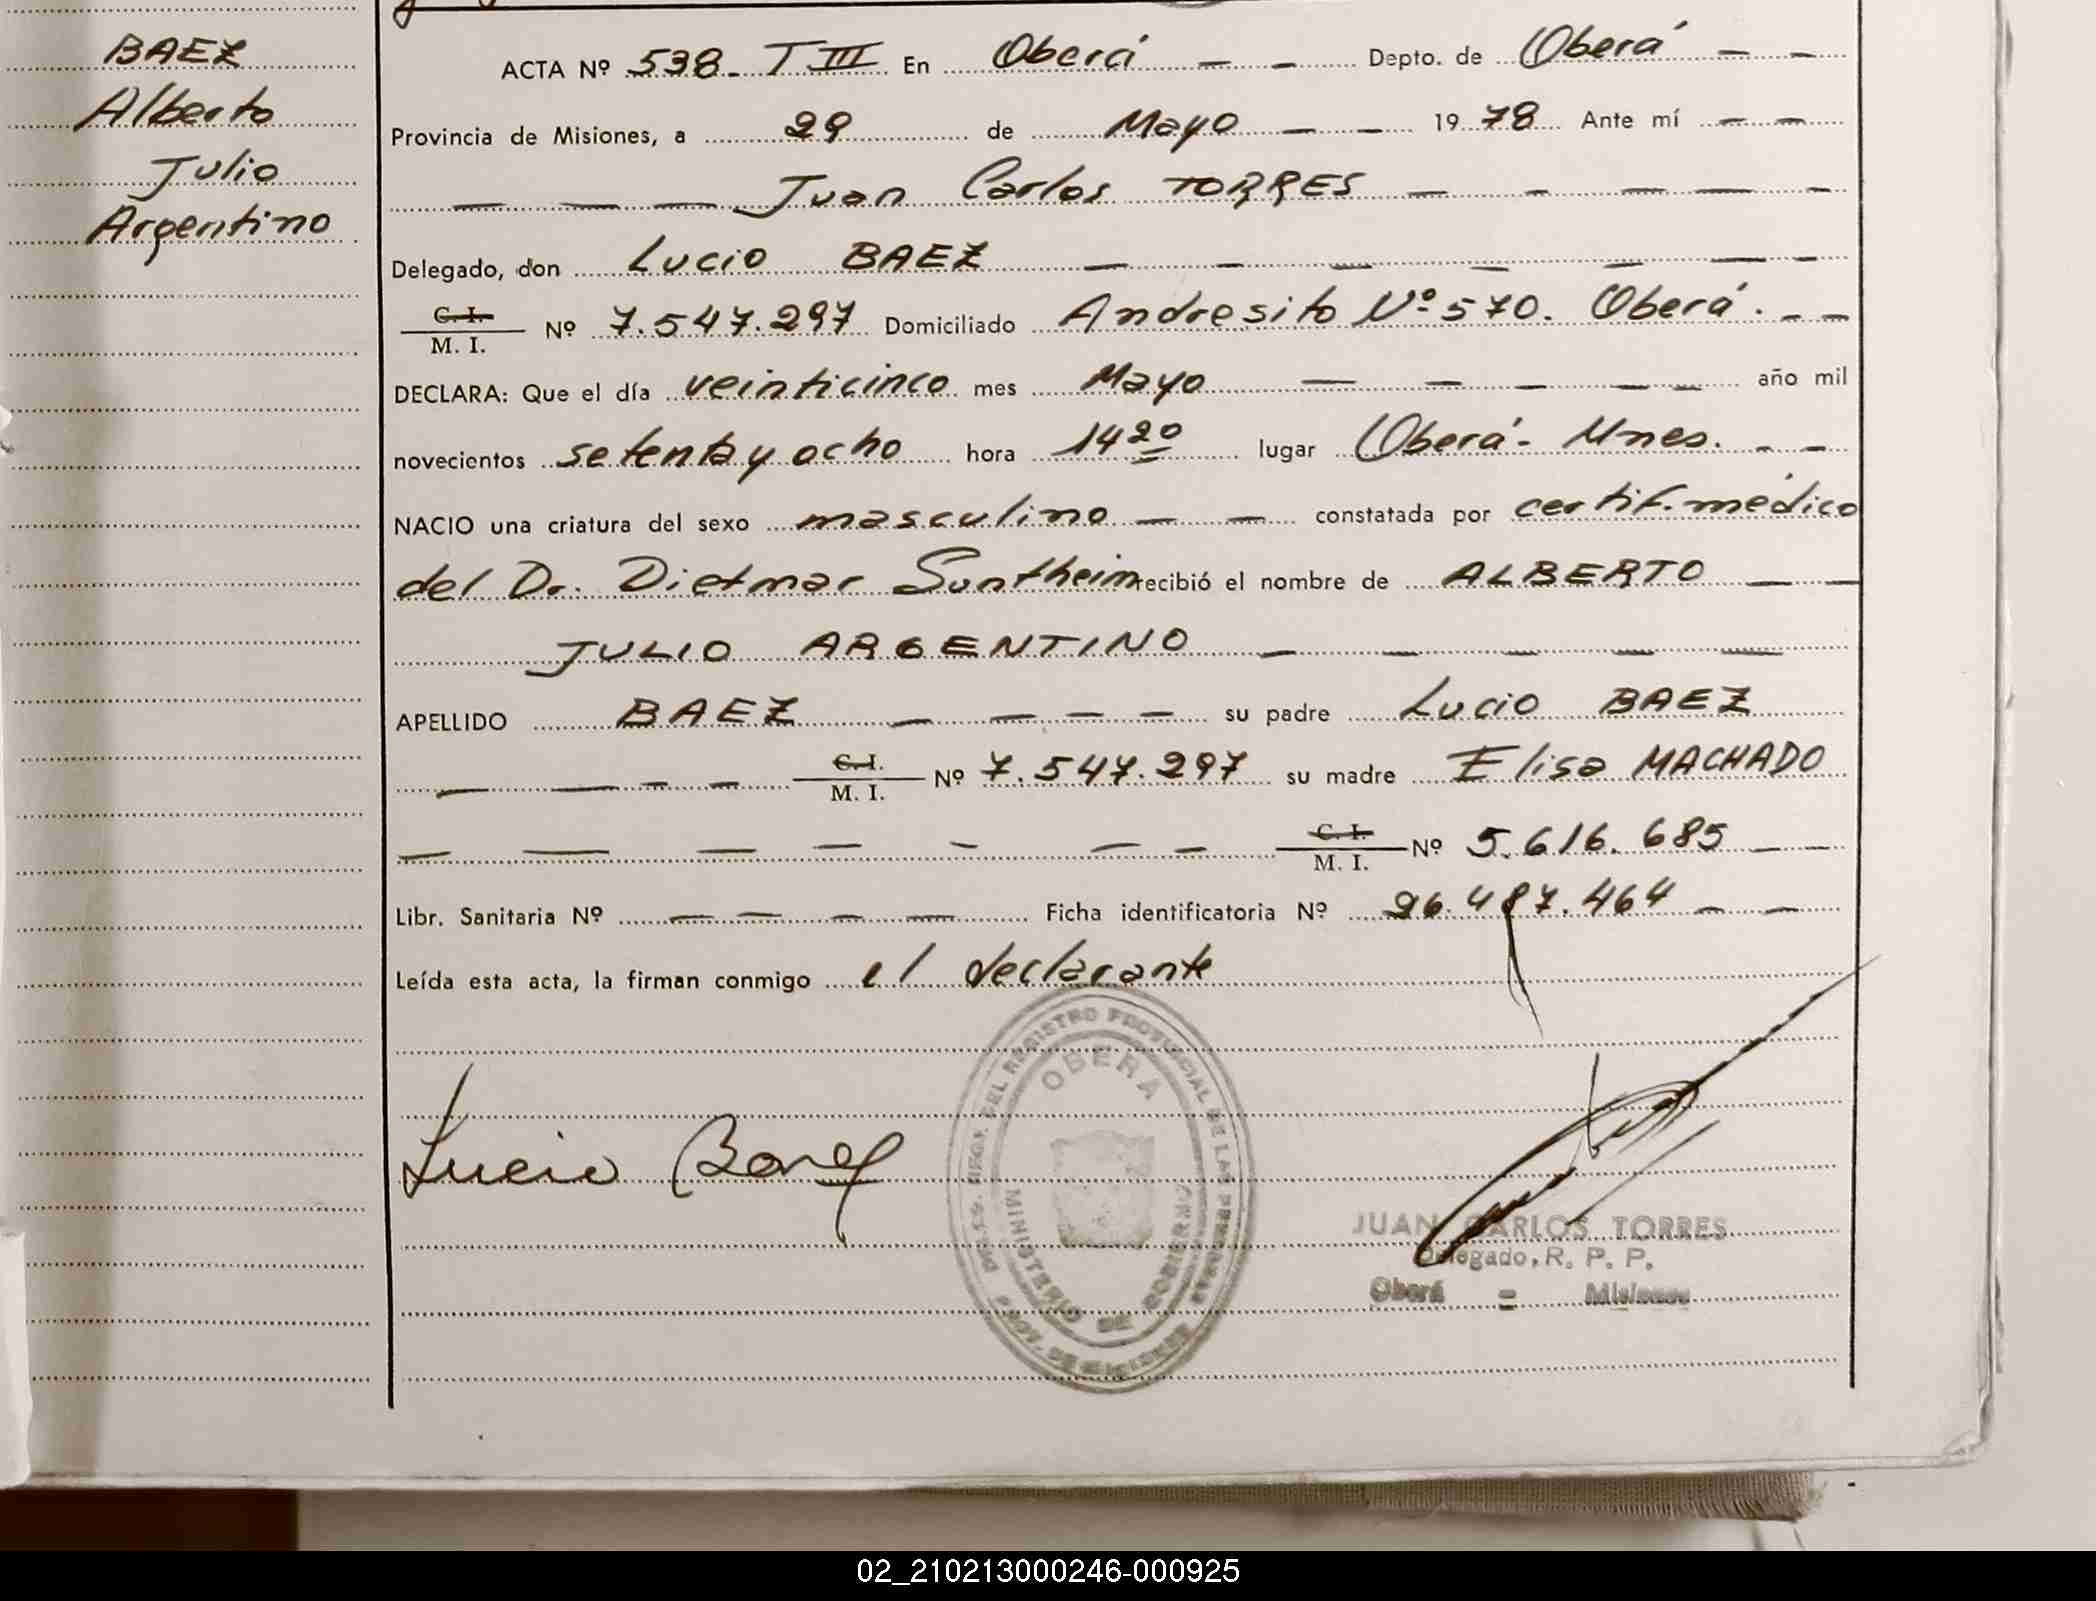 BAEZ
Alberto
Julio
Argentino
ACTA Nº 538. T III En Oberá — — Depto. de Oberá — —
Provincia de Misiones, a 29 de Mayo — — 1978 Ante mí — —
— — — Juan Carlos TORRES — - — — —
Delegado, don Lucio BAEZ — — — — — — —
C. I.
M. I. Nº 7.547.297 Domiciliado Andresito Nº 570. Oberá. — —
DECLARA: Que el día veinticinco mes Mayo — — — — — año mil
novecientos setenta y ocho hora 14 20 lugar Oberá - Mnes. — —
NACIO una criatura del sexo masculino — — constatada por certif. médico
del Dr. Dietmar Suntheim recibió el nombre de ALBERTO — —
JULIO ARGENTINO — — — — —
APELLIDO BAEZ — — — — su padre Lucio BAEZ
— — — — C. I.
M. I. Nº 7.547.297 su madre Elisa MACHADO
— — — — — — — C. I.
M. I. Nº 5.616.685 — —
Libr. Sanitaria Nº — — — — Ficha identificatoria Nº 26.487.464 — —
Leída esta acta, la firman conmigo el declarante
DEL REGISTRO PROVINCIAL DE LAS PERSONAS
OBERA
MINISTERIO DE GOBIERNO
PROV. DE MISIONES
Lucio Baez
JUAN CARLOS TORRES
Delegado, R. P. P.
Oberá - Misiones
02_210213000246-000925